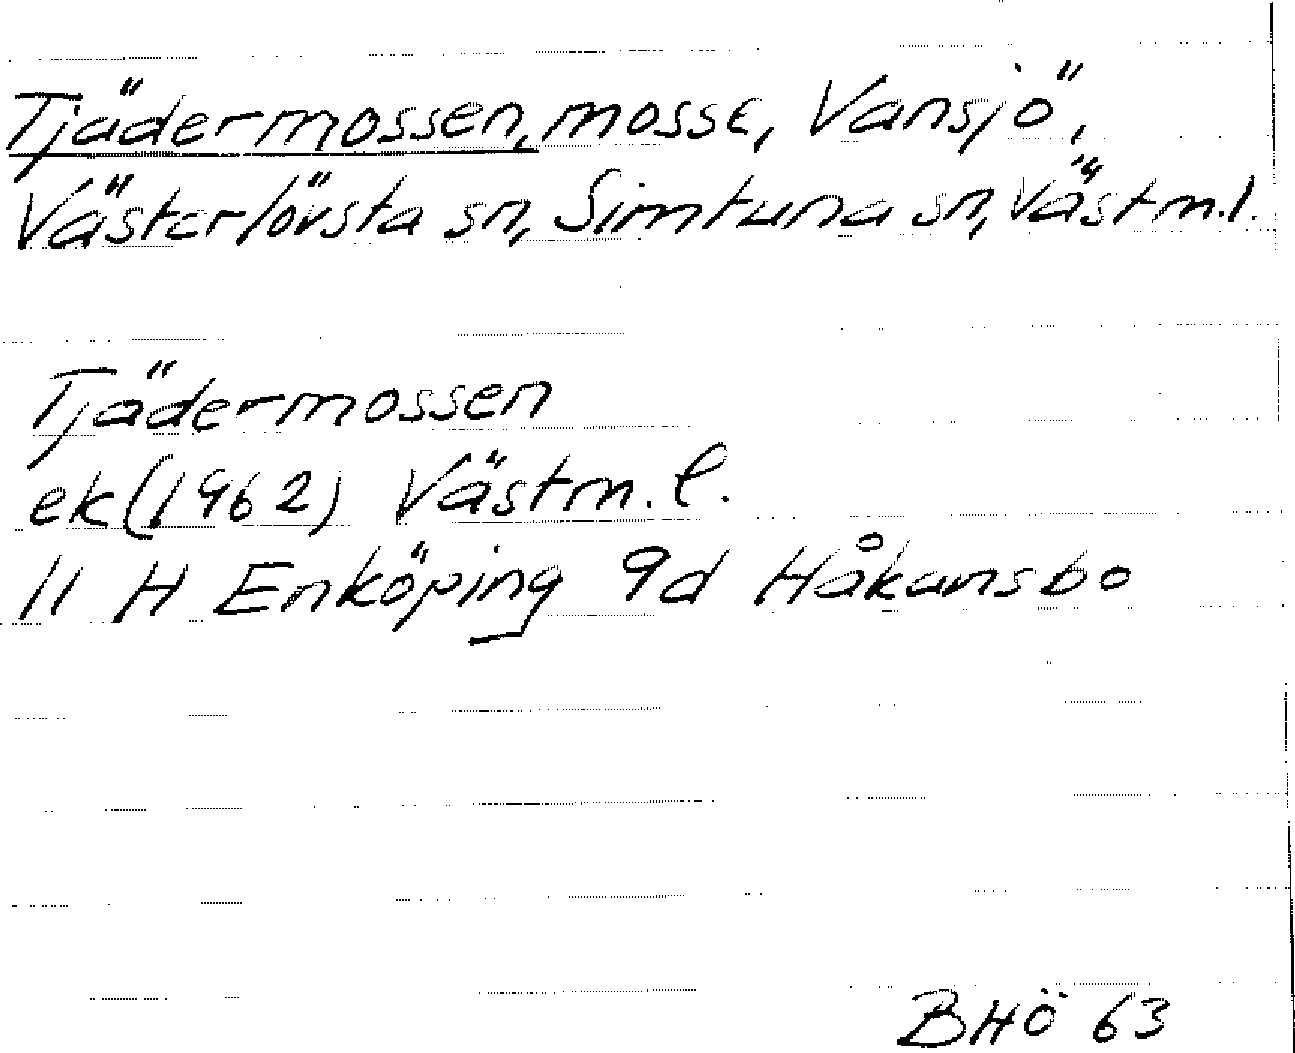 Tjädermossen, mosse, Vansjö,
Västerlövsta sn, Simtuna sn, Västm.l.
Tjädermossen
ek (1962) Västm. l.
11 H Enköping 9d Håkansbo
BHÖ 63